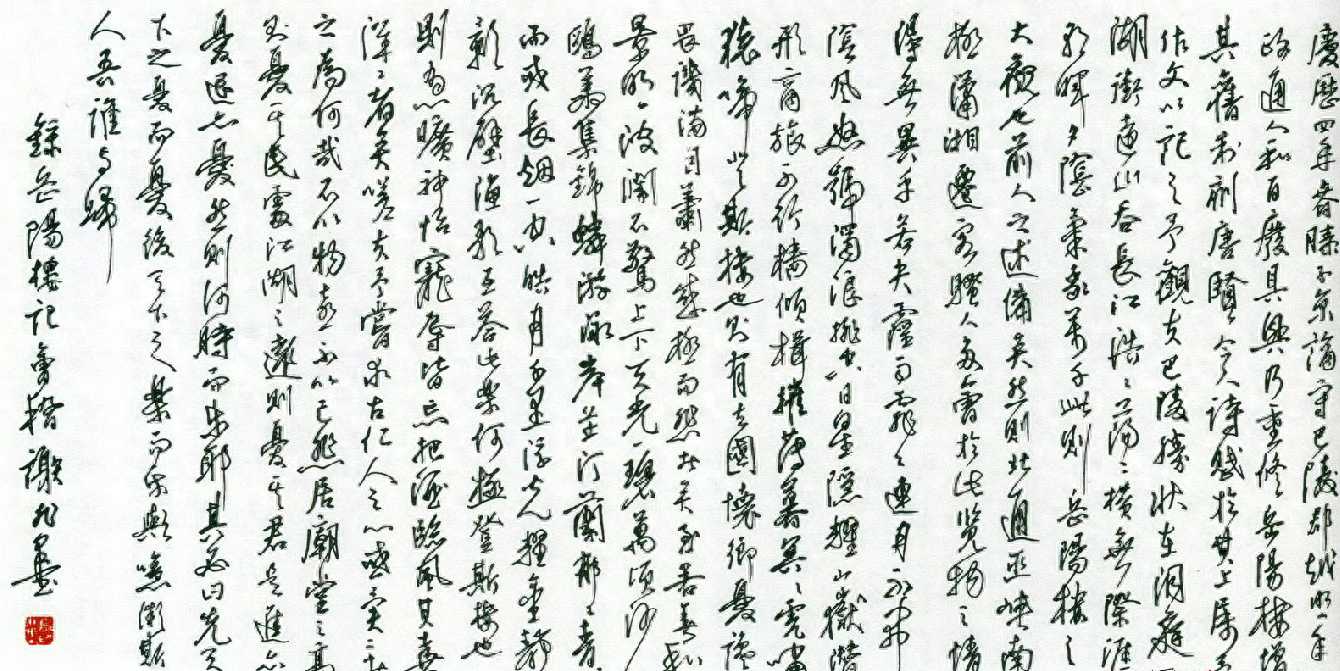 慶歷四年春滕子京謫守巴陵郡越明年
政通人和百廢具興乃重修岳陽樓增
其舊制刻唐賢今人詩賦於其上屬予
作文以記之予觀夫巴陵勝狀在洞庭一
湖銜遠山吞長江浩々湯々橫無際涯
朝暉夕陰氣象萬千此則岳陽樓之
大觀也前人之述備矣然則北通巫峽南
極瀟湘遷客騷人多會於此覽物之情
得無異乎若夫霪雨霏々連月不開
陰風怒號濁浪排空日星隱耀山嶽潛
形商旅不行檣傾楫摧薄暮冥々虎嘯
猿啼登斯樓也則有去國懷鄉憂讒
畏譏滿目蕭然感極而悲者矣至若春和
景明波瀾不驚上下天光一碧萬頃沙
鷗翔集錦鱗游泳岸芷汀蘭郁々青
而或長烟一空皓月千里浮光耀金靜
影沉璧漁歌互答此樂何極登斯樓也
則有心曠神怡寵辱皆忘把酒臨風其喜
洋々者矣嗟夫予嘗求古仁人之心或異二者
之為何哉不以物喜不以己悲居廟堂之高
則憂其民處江湖之遠則憂其君是進亦
憂退亦憂然則何時而樂耶其必曰先天
下之憂而憂後天下之樂而樂歟噫微斯
人吾誰與歸
錄岳陽樓記會稽謝